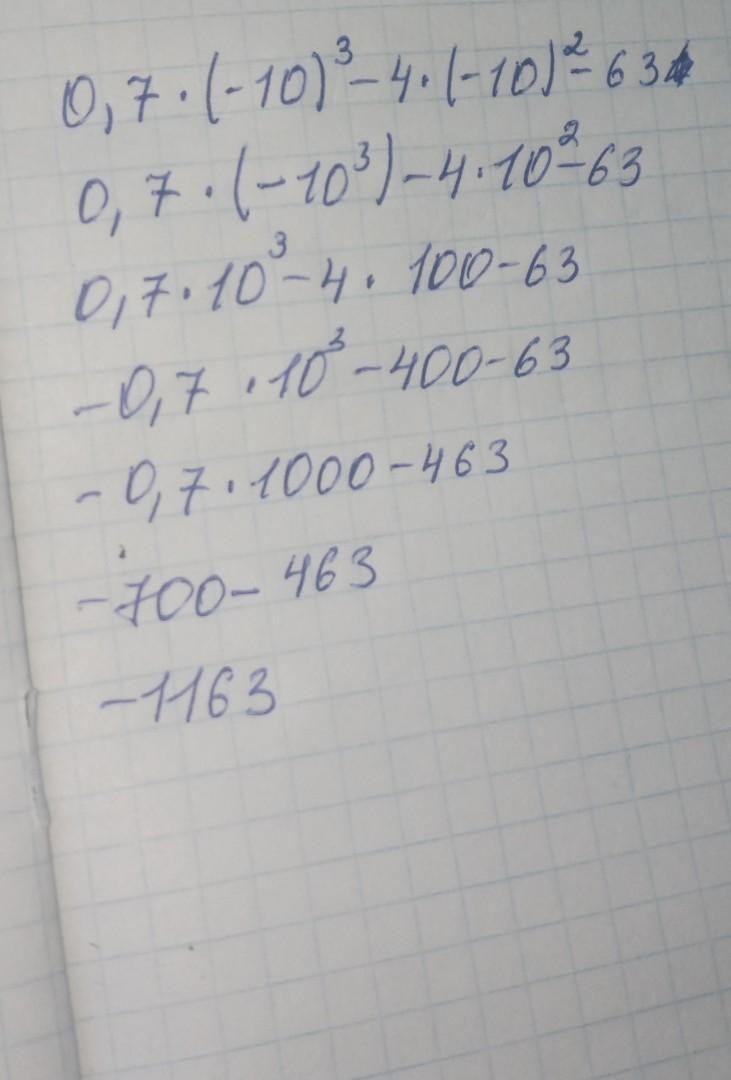 0,7·(-10)³-4·(-10)²-63
0,7·(-10³)-4·10²-63
0,7·10³-4·100-63
-0,7·10³-400-63
-0,7·1000-463
-700-463
-1163